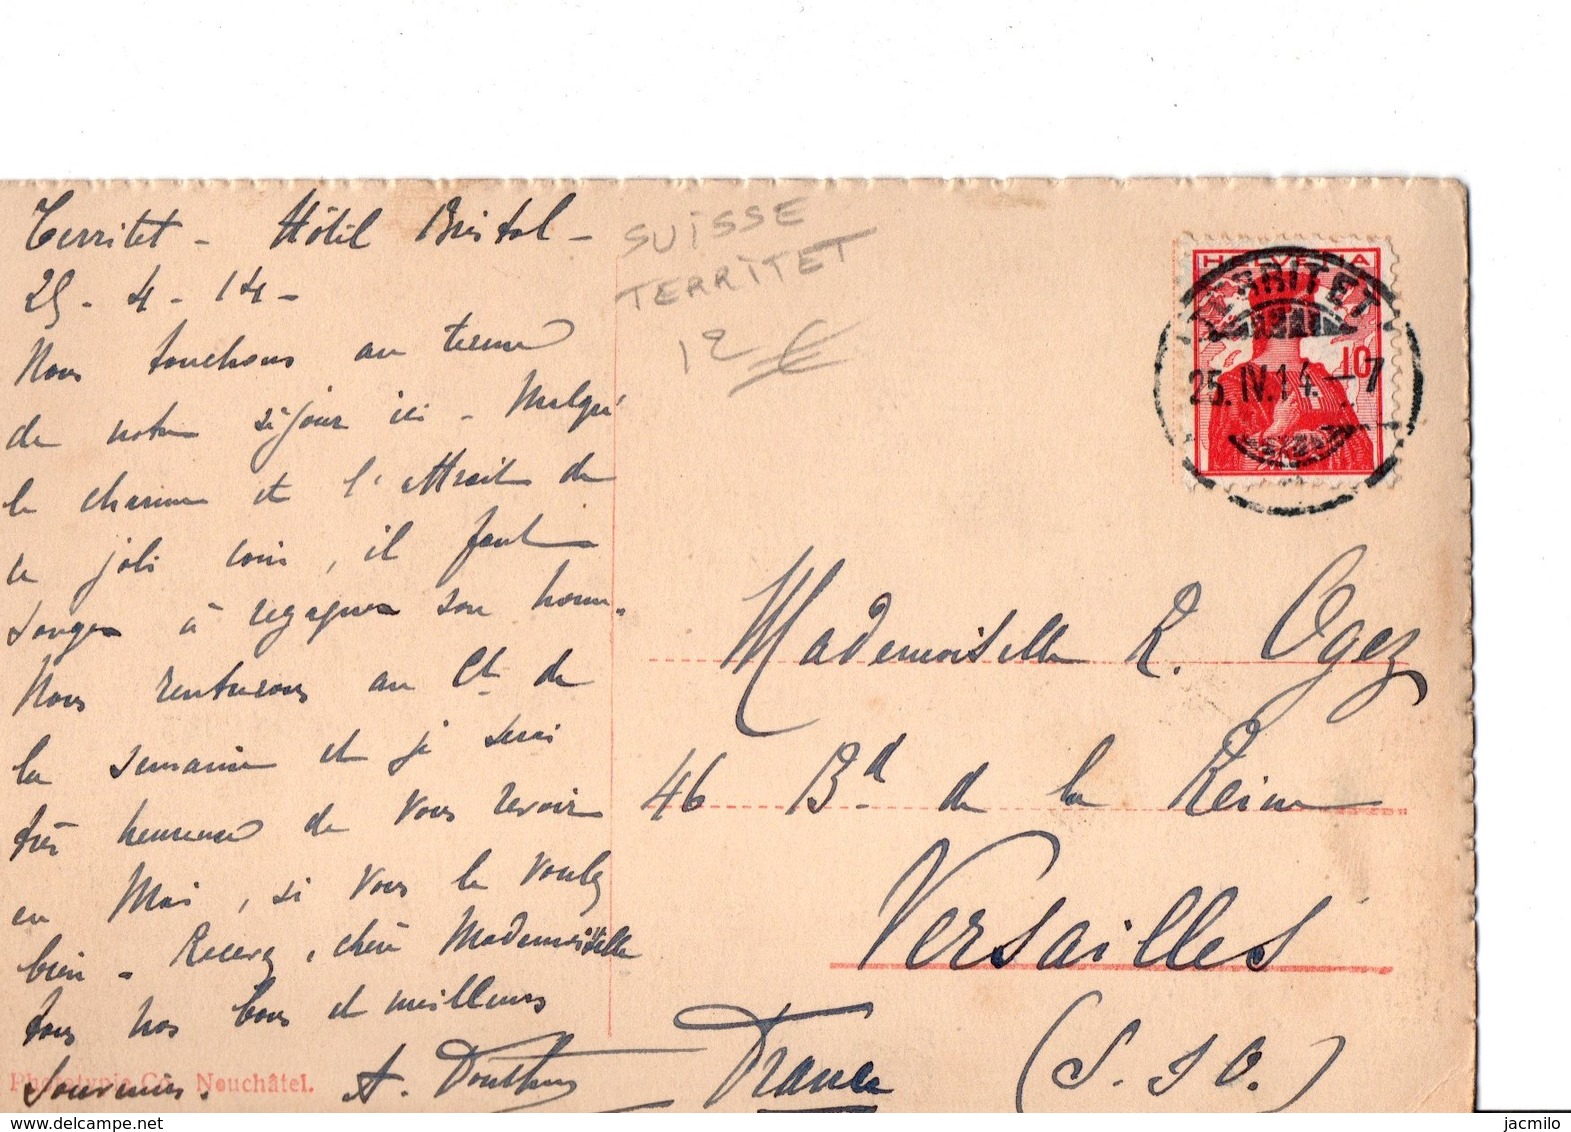 Territet - Hôtel Bristol -
25 - 4 - 14 -
Nous touchons au terme
de notre séjour ici - Malgré
le charme et l'attrait de
ce joli coin, il faut
songer à regagner son home.
Nous rentrerons au Ct de
la semaine et je serai
très heureuse de vous revoir
en Mai, si vous le voulez
bien - Recevez, chère Mademoiselle
tous nos bons et meilleurs
souvenirs.
Phototypie Co., Neuchâtel.
SUISSE
TERRITET
12 €
HELVETIA
10
TERRITET
25.IV.14.-7
Mademoiselle R. Ogez
46 Bd de la Reine
Versailles
France (S. & O.)
delcampe.net
jacmilo